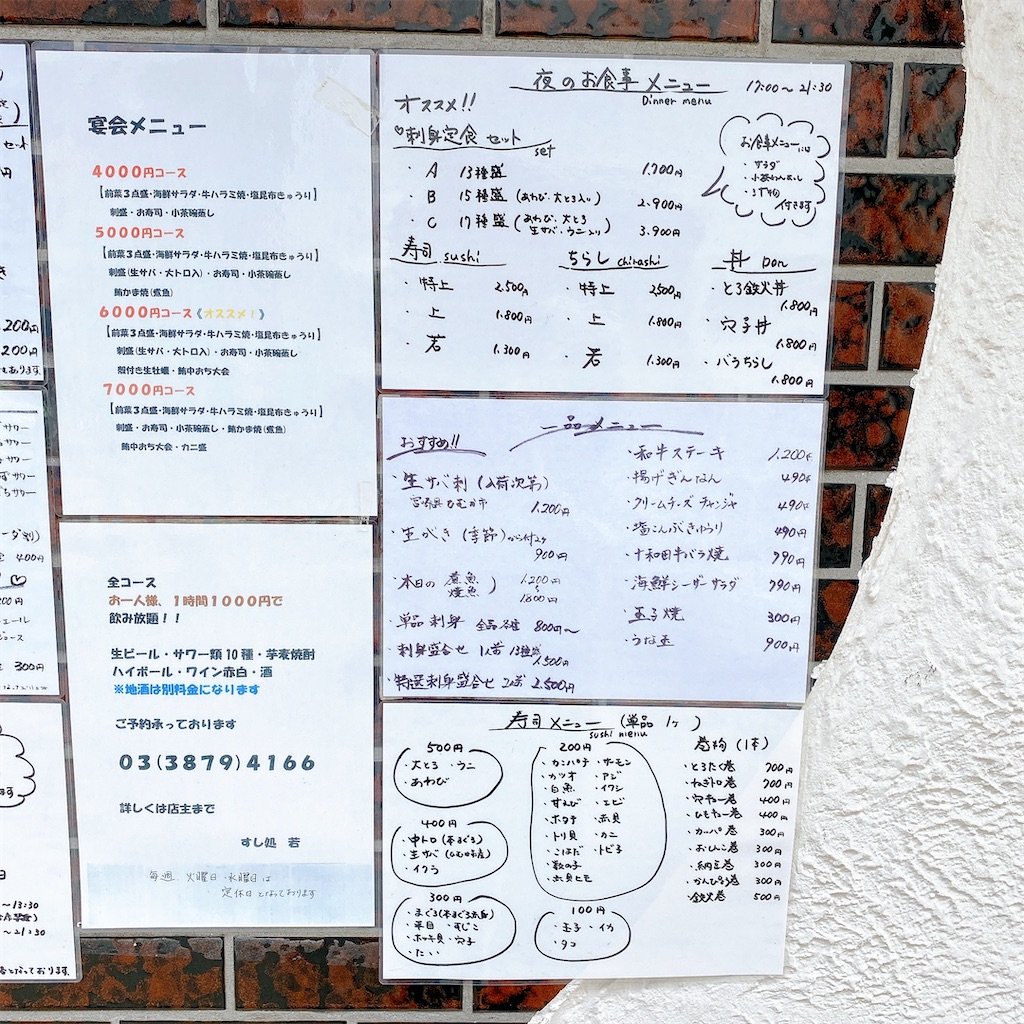 宴会メニュー
4000円コース
【前菜3点盛・海鮮サラダ・牛ハラミ焼・塩昆布きゅうり】
刺盛・お寿司・小茶碗蒸し
5000円コース
【前菜3点盛・海鮮サラダ・牛ハラミ焼・塩昆布きゅうり】
刺盛(生サバ・大トロ入)・お寿司・小茶碗蒸し
鮪かま焼(煮魚)
6000円コース《オススメ！》
【前菜3点盛・海鮮サラダ・牛ハラミ焼・塩昆布きゅうり】
刺盛(生サバ・大トロ入)・お寿司・小茶碗蒸し
殻付き生牡蠣・鮪中おち大会
7000円コース
【前菜3点盛・海鮮サラダ・牛ハラミ焼・塩昆布きゅうり】
刺盛・お寿司・小茶碗蒸し・鮪かま焼(煮魚)
鮪中おち大会・カニ盛
全コース
お一人様、1時間1000円で
飲み放題！！
生ビール・サワー類10種・芋麦焼酎
ハイボール・ワイン赤白・酒
※地酒は別料金になります
ご予約承っております
03(3879)4166
詳しくは店主まで
すし処 若
毎週 火曜日・水曜日は
定休日となっております
夜のお食事メニュー 17:00〜21:30
Dinner menu
オススメ!!
♡刺身定食セット
set
・A 13種盛 1.700円
・B 15種盛(あわび・大とろ入り) 2.900円
・C 17種盛(あわび・大とろ 生サバ・ウニ入り) 3.900円
お食事メニューには
・サラダ
・小茶わんむし
・うす物
付きます
寿司 sushi
・特上 2.500円
・上 1.800円
・若 1.300円
ちらし chirashi
・特上 2,500円
・上 1.800円
・若 1.300円
丼 Don
・とろ鉄火丼
1.800円
・穴子丼
1.800円
・バラちらし
1.800円
一品メニュー
おすすめ!!
・生サバ刺(入荷次第)
1.200円
・生がき(季節)
900円
・本日の 煮魚 焼魚 1.200円 〜 1.800円
・単品刺身 全品各種 800円〜
・刺身盛合せ 1人前 13種盛
1,500円
・特選刺身盛合せ 2.500円
・和牛ステーキ 1.200円
・揚げぎんなん 490円
・クリームチーズチャンジャ 490円
・塩こんぶきゅうり 490円
・十和田牛バラ焼 790円
・海鮮シーザーサラダ 790円
・玉子焼 300円
・うな玉 900円
寿司メニュー(単品 1ヶ)
sushi menu
500円
・大とろ・ウニ
・あわび
400円
・中トロ(本まぐろ)
・生サバ
・イクラ
300円
・まぐろ(本まぐろ赤身)
・平目・すじこ
・ホッキ貝・穴子
・たい
200円
・カンパチ・サーモン
・カツオ・アジ
・白魚・イワシ
・甘えび・エビ
・ホタテ・赤貝
・トリ貝・カニ
・こはだ・トビ子
・数の子
・赤貝ヒモ
100円
・玉子・イカ
・タコ
巻物(1本)
・とろたく巻 700円
・ねぎトロ巻 700円
・穴キュー巻 400円
・ひもキュー巻 400円
・カッパ巻 300円
・おしんこ巻 300円
・納豆巻 300円
・かんぴょう巻 300円
・鉄火巻 500円